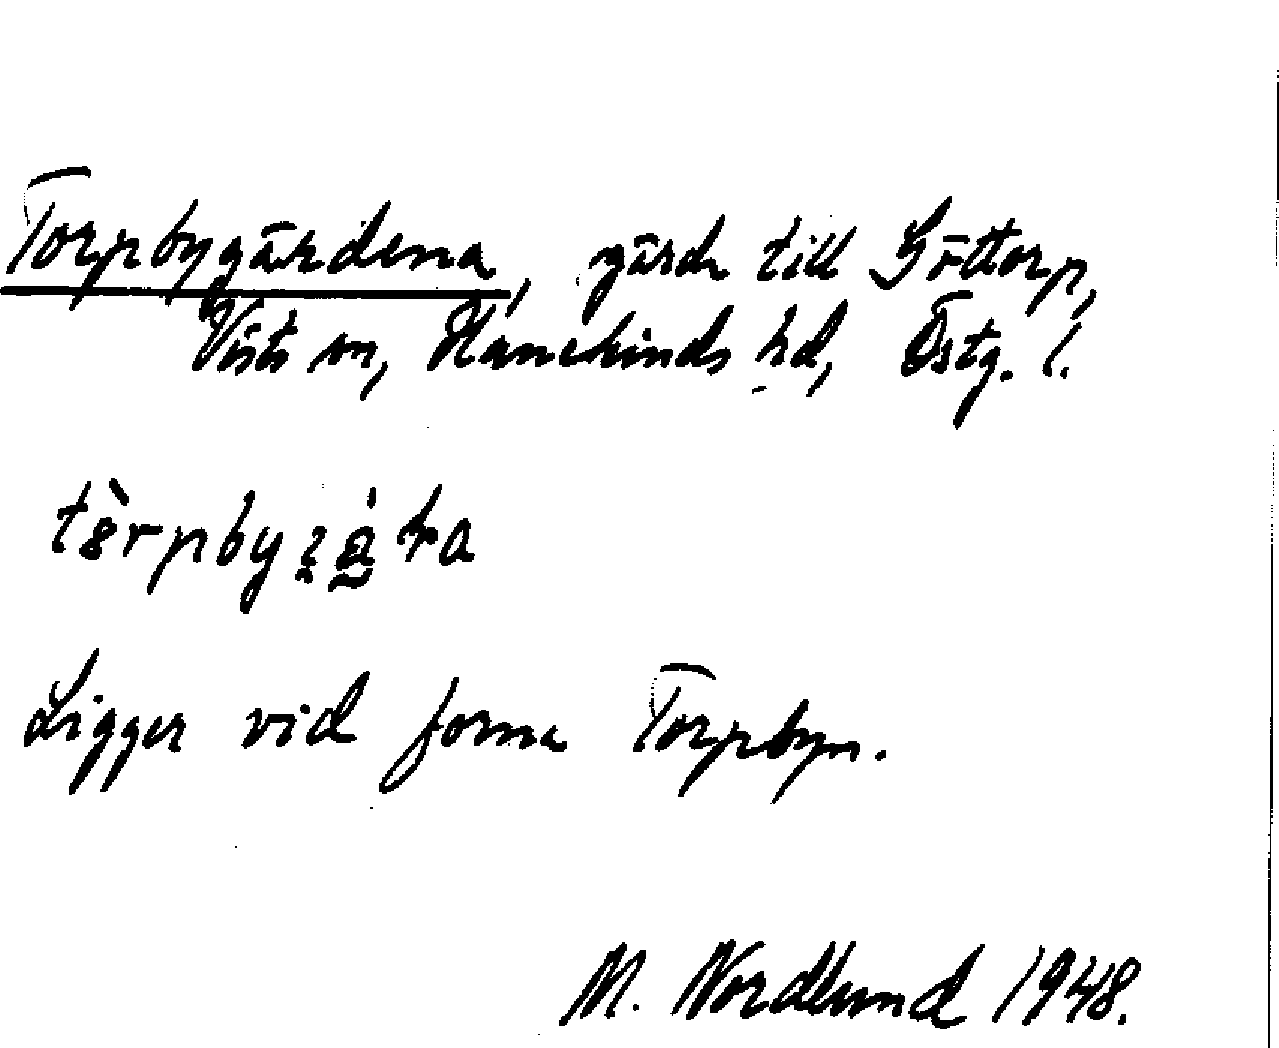 Torpbygärdena, gärde till Göttorp,
Vists sn, Hanekinds hd, Östg. l.
Ligger vid forna Torpbyn.
M. Nordlund 1948.